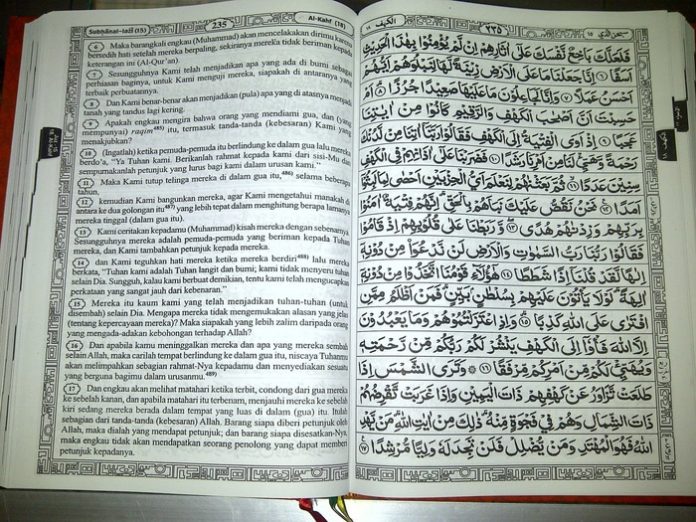 Subḥânal-laẑî (15) 235 Al-Kahf (18)
6 Maka barangkali engkau (Muhammad) akan mencelakakan dirimu karena
bersedih hati setelah mereka berpaling, sekiranya mereka tidak beriman kepada
keterangan ini (Al-Qur'an).
7 Sesungguhnya Kami telah menjadikan apa yang ada di bumi sebagai
perhiasan baginya, untuk Kami menguji mereka, siapakah di antaranya yang
terbaik perbuatannya.
8 Dan Kami benar-benar akan menjadikan (pula) apa yang di atasnya menjadi
tanah yang tandus lagi kering.
9 Apakah engkau mengira bahwa orang yang mendiami gua, dan (yang
mempunyai) raqim 485) itu, termasuk tanda-tanda (kebesaran) Kami yang
menakjubkan?
10 (Ingatlah) ketika pemuda-pemuda itu berlindung ke dalam gua lalu mereka
berdo'a, "Ya Tuhan kami. Berikanlah rahmat kepada kami dari sisi-Mu dan
sempurnakanlah petunjuk yang lurus bagi kami dalam urusan kami."
11 Maka Kami tutup telinga mereka di dalam gua itu,486) selama beberapa
tahun.
12 kemudian Kami bangunkan mereka, agar Kami mengetahui manakah di
antara ke dua golongan itu487) yang lebih tepat dalam menghitung berapa lamanya
mereka tinggal (dalam gua itu).
13 Kami ceritakan kepadamu (Muhammad) kisah mereka dengan sebenarnya.
Sesungguhnya mereka adalah pemuda-pemuda yang beriman kepada Tuhan
mereka, dan Kami tambahkan petunjuk kepada mereka.
14 dan Kami teguhkan hati mereka ketika mereka berdiri488) lalu mereka
berkata, "Tuhan kami adalah Tuhan langit dan bumi; kami tidak menyeru tuhan
selain Dia. Sungguh, kalau kami berbuat demikian, tentu kami telah mengucapkan
perkataan yang sangat jauh dari kebenaran."
15 Mereka itu kaum kami yang telah menjadikan tuhan-tuhan (untuk
disembah) selain Dia. Mengapa mereka tidak mengemukakan alasan yang jelas
(tentang kepercayaan mereka)? Maka siapakah yang lebih zalim daripada orang
yang mengada-adakan kebohongan terhadap Allah?
16 Dan apabila kamu meninggalkan mereka dan apa yang mereka sembah
selain Allah, maka carilah tempat berlindung ke dalam gua itu, niscaya Tuhanmu
akan melimpahkan sebagian rahmat-Nya kepadamu dan menyediakan sesuatu
yang berguna bagimu dalam urusanmu.489)
17 Dan engkau akan melihat matahari ketika terbit, condong dari gua mereka
ke sebelah kanan, dan apabila matahari itu terbenam, menjauhi mereka ke sebelah
kiri sedang mereka berada dalam tempat yang luas di dalam (gua) itu. Itulah
sebagian dari tanda-tanda (kebesaran) Allah. Barang siapa diberi petunjuk oleh
Allah, maka dialah yang mendapat petunjuk; dan barang siapa disesatkan-Nya,
maka engkau tidak akan mendapatkan seorang penolong yang dapat memberi
petunjuk kepadanya.
سبحن الذي ١٥ ٢٣٥ الكهف ١٨
فَلَعَلَّكَ بَاخِعٌ نَّفْسَكَ عَلَىٰ آثَارِهِمْ إِن لَّمْ يُؤْمِنُوا بِهَٰذَا الْحَدِيثِ
أَسَفًا ٦ إِنَّا جَعَلْنَا مَا عَلَى الْأَرْضِ زِينَةً لَّهَا لِنَبْلُوَهُمْ أَيُّهُمْ
أَحْسَنُ عَمَلًا ٧ وَإِنَّا لَجَاعِلُونَ مَا عَلَيْهَا صَعِيدًا جُرُزًا ٨ أَمْ
حَسِبْتَ أَنَّ أَصْحَابَ الْكَهْفِ وَالرَّقِيمِ كَانُوا مِنْ آيَاتِنَا
عَجَبًا ٩ إِذْ أَوَى الْفِتْيَةُ إِلَى الْكَهْفِ فَقَالُوا رَبَّنَا آتِنَا مِن لَّدُنكَ
رَحْمَةً وَهَيِّئْ لَنَا مِنْ أَمْرِنَا رَشَدًا ١٠ فَضَرَبْنَا عَلَىٰ آذَانِهِمْ فِي الْكَهْفِ
سِنِينَ عَدَدًا ١١ ثُمَّ بَعَثْنَاهُمْ لِنَعْلَمَ أَيُّ الْحِزْبَيْنِ أَحْصَىٰ لِمَا لَبِثُوا
أَمَدًا ١٢ نَّحْنُ نَقُصُّ عَلَيْكَ نَبَأَهُم بِالْحَقِّ إِنَّهُمْ فِتْيَةٌ آمَنُوا
بِرَبِّهِمْ وَزِدْنَاهُمْ هُدًى ١٣ وَرَبَطْنَا عَلَىٰ قُلُوبِهِمْ إِذْ قَامُوا
فَقَالُوا رَبُّنَا رَبُّ السَّمَاوَاتِ وَالْأَرْضِ لَن نَّدْعُوَ مِن دُونِهِ
إِلَٰهًا لَّقَدْ قُلْنَا إِذًا شَطَطًا ١٤ هَٰؤُلَاءِ قَوْمُنَا اتَّخَذُوا مِن دُونِهِ
آلِهَةً لَّوْلَا يَأْتُونَ عَلَيْهِم بِسُلْطَانٍ بَيِّنٍ فَمَنْ أَظْلَمُ مِمَّنِ
افْتَرَىٰ عَلَى اللَّهِ كَذِبًا ١٥ وَإِذِ اعْتَزَلْتُمُوهُمْ وَمَا يَعْبُدُونَ
إِلَّا اللَّهَ فَأْوُوا إِلَى الْكَهْفِ يَنشُرْ لَكُمْ رَبُّكُم مِّن رَّحْمَتِهِ
وَيُهَيِّئْ لَكُم مِّنْ أَمْرِكُم مِّرْفَقًا ١٦ وَتَرَى الشَّمْسَ إِذَا
طَلَعَت تَّزَاوَرُ عَن كَهْفِهِمْ ذَاتَ الْيَمِينِ وَإِذَا غَرَبَت تَّقْرِضُهُمْ
ذَاتَ الشِّمَالِ وَهُمْ فِي فَجْوَةٍ مِّنْهُ ذَٰلِكَ مِنْ آيَاتِ اللَّهِ مَن يَهْدِ
اللَّهُ فَهُوَ الْمُهْتَدِ وَمَن يُضْلِلْ فَلَن تَجِدَ لَهُ وَلِيًّا مُّرْشِدًا ١٧